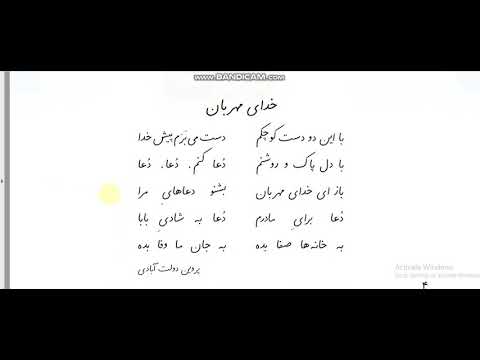 www.BANDICAM.com
خدای مهربان
با این دو دست کوچکم دست می‌بَرَم پیش خدا
با دل پاک و روشنم دُعا کنم، دُعا، دُعا
باز ای خدای مهربان بشنو دعاهایِ مرا
دُعا برایِ مادرم دُعا به شادیِ بابا
به خانه‌ها صفا بده به جان ما وفا بده
پروین دولت آبادی
Activate Windows
۴